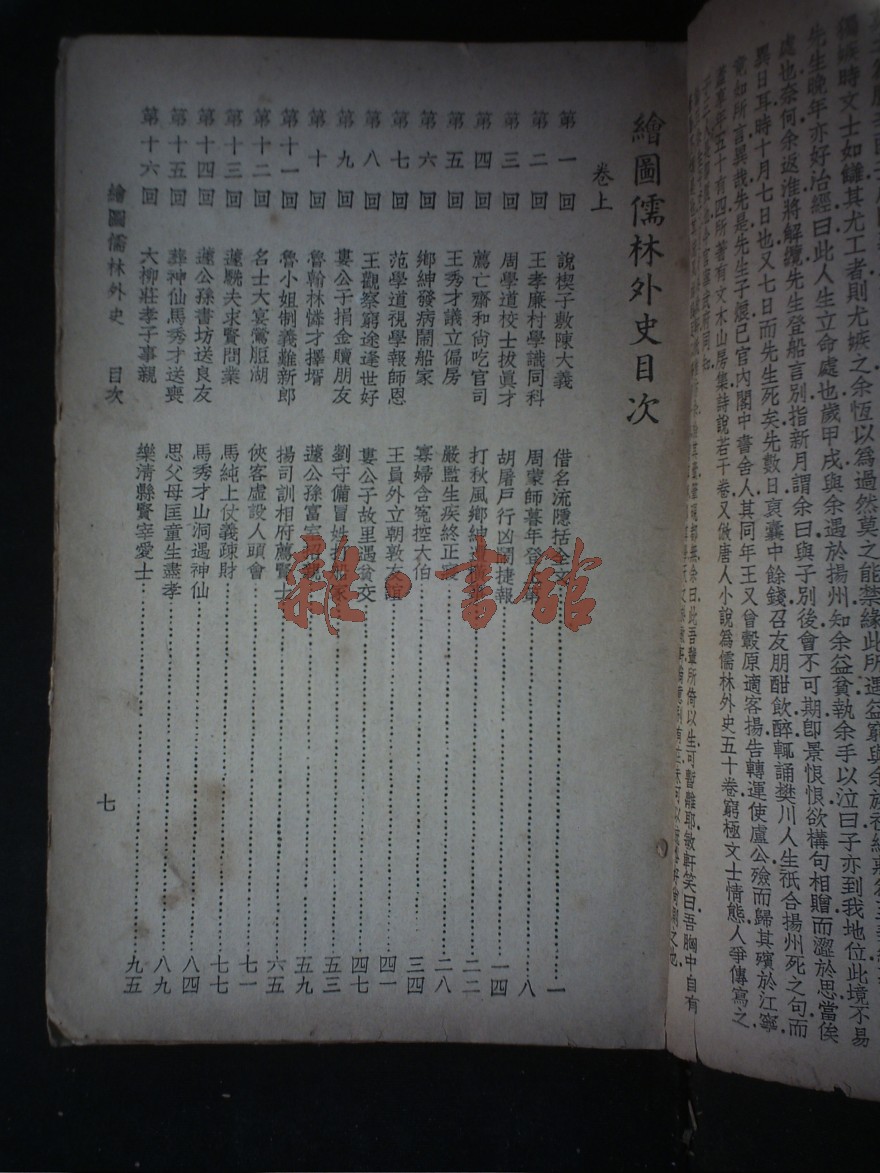 獨嫉時文士如讎其尤工者則尤嫉之余恆以爲過然莫之能禁緣此所遇益窮與余族
處也奈何余返淮將解纜先生登船言別指新月謂余曰與子別後會不可期卽景悢悢欲構句相贈而澀於思當俟
先生晚年亦好治經曰此人生立命處也歲甲戌與余遇於揚州知余益貧執余手以泣曰子亦到我地位此境不易
異日耳時十月七日也又七日而先生死矣先數日裒囊中餘錢召友朋酣飲醉輒誦樊川人生祇合揚州死之句而
竟如所言異哉先是先生子烺已官內閣中書舍人其同年王又曾轂原適客揚告轉運使盧公殮而歸其殯於江寧
蓋享年五十有四所著有文木山房集詩說若干卷又倣唐人小說爲儒林外史五十卷窮極文士情態人爭傳寫之
繪圖儒林外史目次
卷上
第一回 說楔子敷陳大義 借名流隱括全文 一
第二回 王孝廉村學識同科 周蒙師暮年登 八
第三回 周學道校士拔眞才 胡屠戶行凶鬧捷報 一四
第四回 薦亡齋和尙吃官司 打秋風鄉紳 二二
第五回 王秀才議立偏房 嚴監生疾終正寢 二八
第六回 鄉紳發病鬧船家 寡婦含冤控大伯 三四
第七回 范學道視學報師恩 王員外立朝敦友誼 四一
第八回 王觀察窮途逢世好 婁公子故里遇貧交 四七
第九回 婁公子捐金贖朋友 劉守備冒姓打船家 五三
第十回 魯翰林憐才擇壻 蘧公孫富室招親 五九
第十一回 魯小姐制義難新郎 楊司訓相府薦賢士 六五
第十二回 名士大宴鶯脰湖 俠客虛設人頭會 七一
第十三回 蘧駪夫求賢問業 馬純上仗義疎財 七七
第十四回 蘧公孫書坊送良友 馬秀才山洞遇神仙 八四
第十五回 葬神仙馬秀才送喪 思父母匡童生盡孝 八九
第十六回 大柳莊孝子事親 樂淸縣賢宰愛士 九五
繪圖儒林外史 目次
七
雜·書館